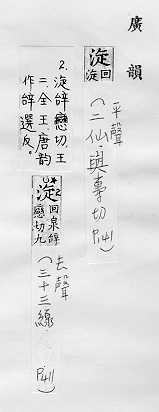 廣韻
淀 回淀
平聲
(二仙·與專切 P.141)
淀 回泉 辝戀切 九
去聲
(三十三線 P.411)
2. 淀辝戀切，王
二、全王、唐韵
作辝選反。